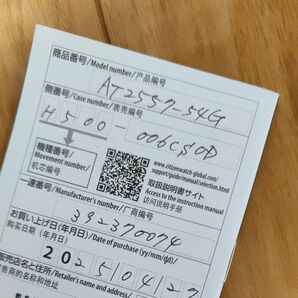 商品番号/Model number/产品编号
AT2557-54G
側番号/Case number/表壳编号
H500-006CSOD
機番号/
Movement number/
机芯编号
www.citizenwatch-global.com/
support/guide/manual/selection.html
取扱説明書サイト
Access to the instruction manual
访问说明手册
一連番号/Manufacturer's number/厂商编号
392370074
お買い上げ日(年月日)/Date of purchase(yy/mm/dd)/
购买日期(年月日)
2025 04 27
売店名と住所/Retailer's name and address/
售商的名称和地址